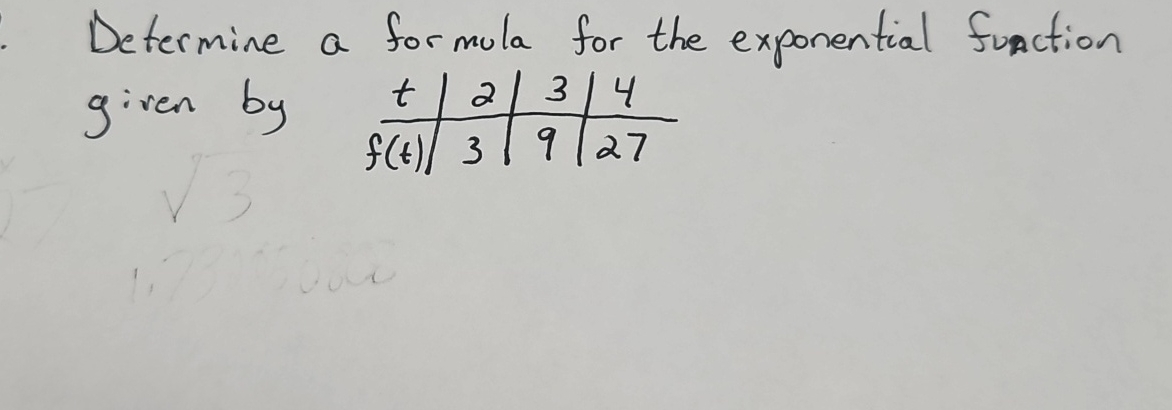 Determine a formula for the exponential function
given by t | 2 | 3 | 4
f(t) | 3 | 9 | 27
√3